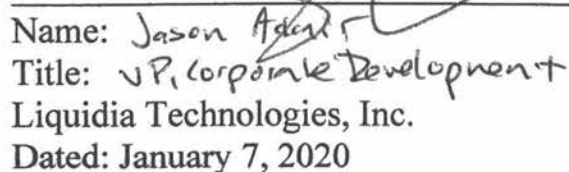 Name: Jason Adair
Title: VP, Corporate Development
Liquidia Technologies, Inc.
Dated: January 7, 2020